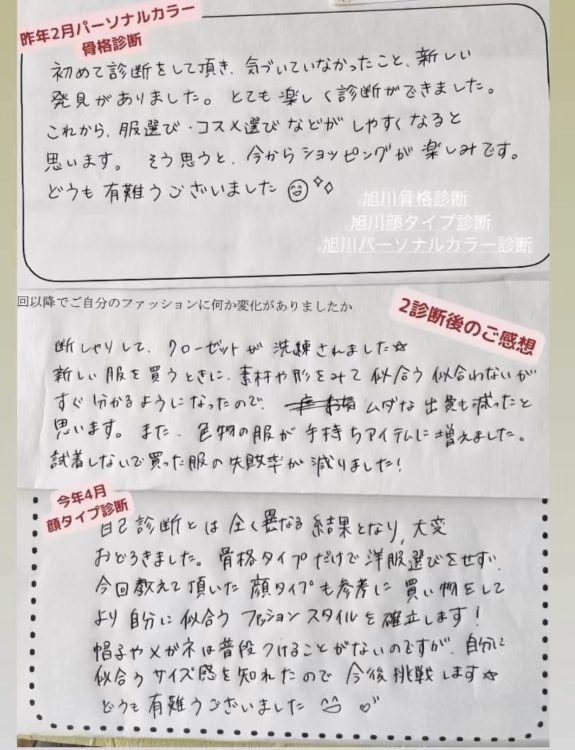 昨年2月パーソナルカラー
骨格診断
初めて診断をして頂き、気づいていなかったこと、新しい
発見がありました。とても楽しく診断ができました。
これから、服選び・コスメ選びなどがしやすくなると
思います。そう思うと、今からショッピングが楽しみです。
どうも有難うございました
旭川骨格診断
旭川顔タイプ診断
旭川パーソナルカラー診断
回以降でご自分のファッションに何か変化がありましたか
2診断後のご感想
断しゃりして、クローゼットが洗練されました☆
新しい服を買うときに、素材や形をみて似合う似合わないが
すぐ分かるようになったので、ムダな出費も減ったと
思います。また、色物の服が手持ちアイテムに増えました。
試着しないで買った服の失敗率が減りました!
今年4月
顔タイプ診断
自己診断とは全く異なる結果となり、大変
おどろきました。骨格タイプだけで洋服選びをせず、
今回教えて頂いた顔タイプも参考に買い物をして
より自分に似合うファッションスタイルを確立します!
帽子やメガネは普段つけることがないのですが、自分に
似合うサイズ感を知れたので今後挑戦します☆
どうも有難うございました